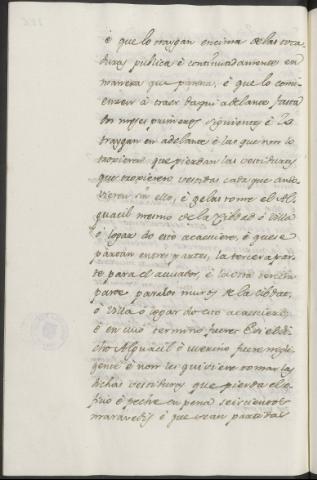 é que lo traygan encima de las toca
duras publica é continuadamente en
manera que paresca, é que lo comi
enzen á traer daqui adelante fasta
dos meses primeros siguiente é lo
traygan en adelante é las que non lo
troxieren que pierdan las vestiduras
que troxieren vestidas cada que andu
vieren sin ello, é gelas tome el Al
guacil mesmo de la Cibdad ó villa
ó logar do esto acaesciere, é que se
partan en tres partes, la tercera par
te para el acusador, é la otra tercera
parte para los muros de la cibdad,
ó villa ó logar do esto acaesciere
ó en cuio termino fuere: E si el di
cho Alguacil ó merino fuere negli
gente é non les quisiere tomar las
dichas vestiduras que pierda el o
ficio é peche en pena seiscientos
maravedis é que sean partidos